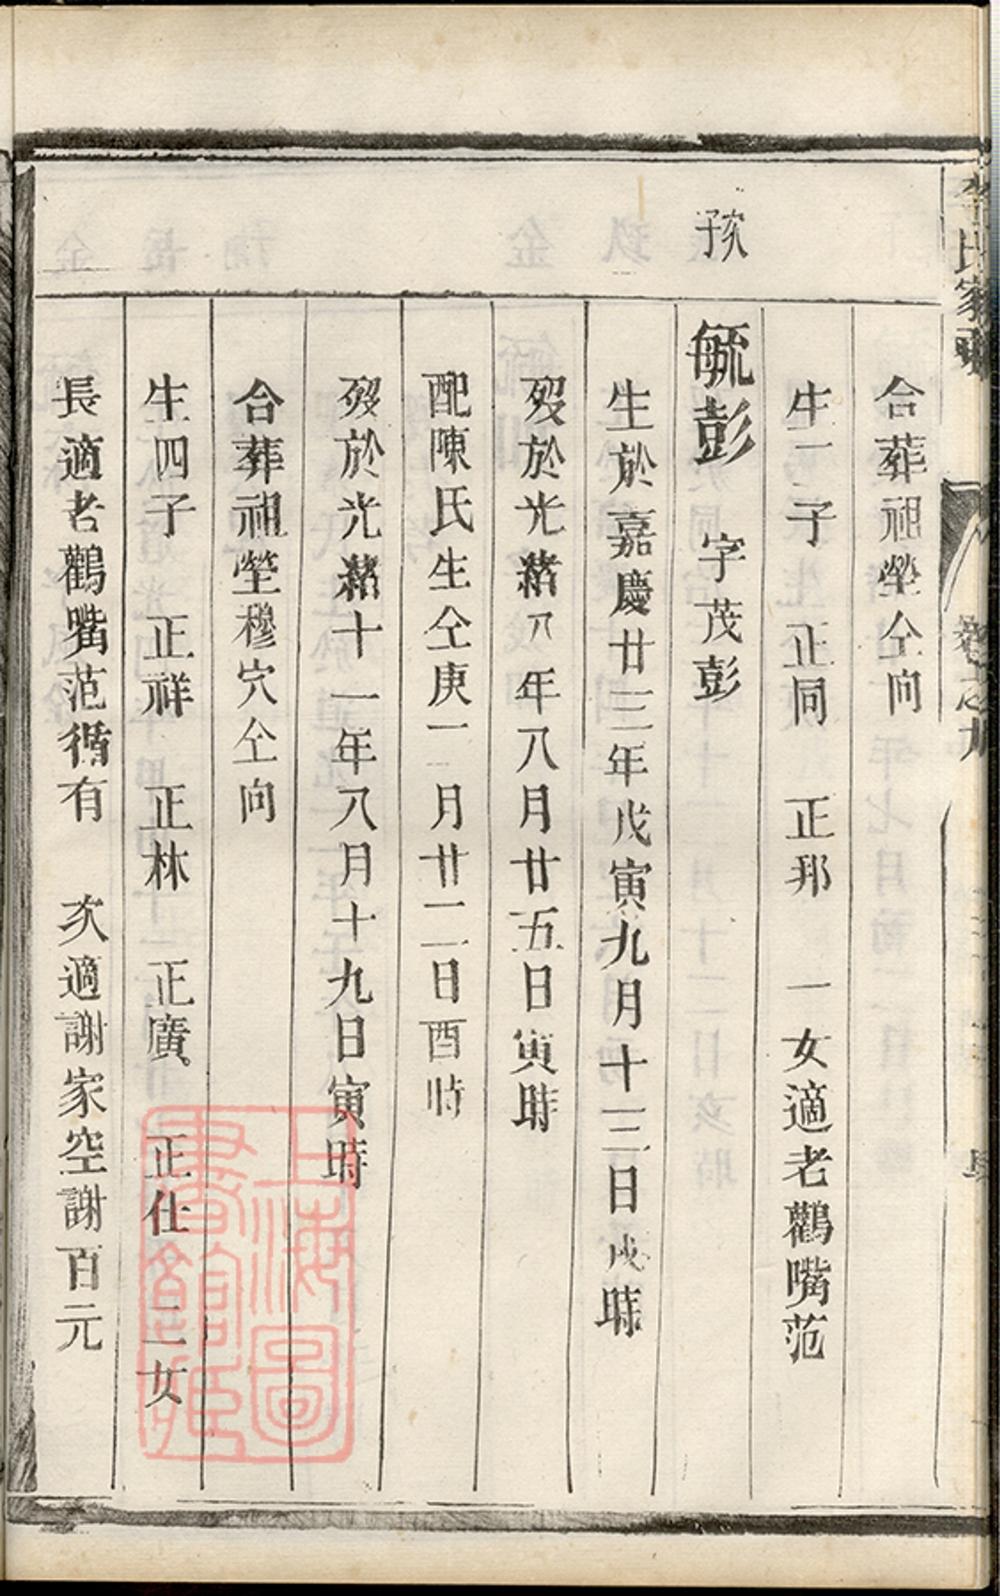 李氏家
合葬祖塋仝向
生二子 正同 正邦 一女適老鸛嘴范
次子
毓彭 字茂彭
生於嘉慶廿三年戊寅九月十三日戌時
歿於光緒年八月廿五日寅時
配陳氏生仝庚月廿二日酉時
歿於光緒十一年八月十九日寅時
合葬祖塋穆穴仝向
生四子 正祥 正林 正廣 正仕 二女
長適老鸛嘴范循有 次適謝家空謝百元
上海圖書館藏